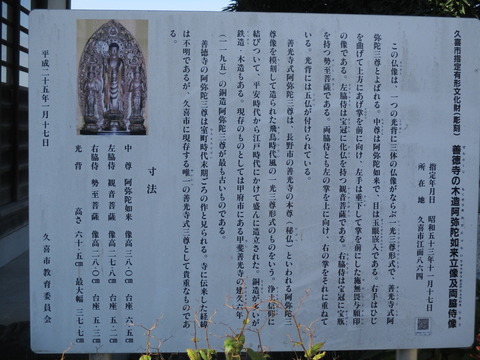 久喜市指定有形文化財（彫刻）
善徳寺の木造阿弥陀如来立像及両脇侍像
指定年月日　昭和五十三年十一月十七日
所在地　久喜市江面八六四
この仏像は、一つの光背に三体の仏像がならぶ一光三尊形式で、善光寺式阿
弥陀三尊とよばれる。中尊は阿弥陀如来で、目は玉眼嵌入である。右手は肘
を曲げて上方にあげ掌を前に向け、左手は垂下して掌を前にした施無畏与願印
の像である。左脇侍は宝冠に化仏を持つ観音菩薩である。右脇侍は宝冠に宝瓶
を持つ勢至菩薩である。両脇侍とも左の掌を上に向け、右の掌をそれに重ねて
いる。光背には五仏が付けられている。
善光寺式阿弥陀三尊は、長野市の善光寺の本尊（秘仏）といわれる阿弥陀三
尊像を模刻して造られた飛鳥時代風の一光三尊形式のものをいう。浄土信仰に
結びついて、平安時代から江戸時代にかけて盛んに造立された。銅造が多いが
鉄造・木造もある。現存のものとしては山梨県甲府市にある甲斐善光寺の建久六年
（一一九五）の銅造阿弥陀三尊が最も古いものである。
善徳寺の阿弥陀三尊は室町時代末期ごろの作と見られる。寺に伝来した経緯
は不明であるが、久喜市に現存する唯一の善光寺式三尊として貴重なものであ
る。
寸法
中尊　阿弥陀如来　像高三八・〇㎝　台座六・五㎝
左脇侍　観音菩薩　像高二七・八㎝　台座五・二㎝
右脇侍　勢至菩薩　像高二八・〇㎝　台座五・三㎝
光背　高さ六十二・五㎝　最大幅三七・七㎝
平成二十五年一月十七日
久喜市教育委員会